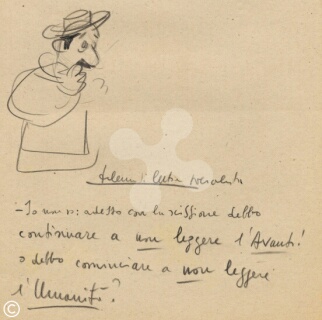 - Io non so: adesso con la scissione debbo
continuare a non leggere l'Avanti!
o debbo cominciare a non leggere
l'Umanità?
©